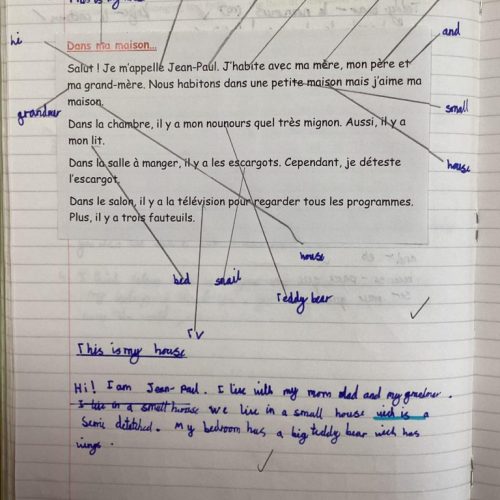 hi
and
Dans ma maison...
Salut ! Je m'appelle Jean-Paul. J'habite avec ma mère, mon père et
ma grand-mère. Nous habitons dans une petite maison mais j'aime ma
maison.
grandmer
small
Dans la chambre, il y a mon nounours quel très mignon. Aussi, il y a
mon lit.
house
Dans la salle à manger, il y a les escargots. Cependant, je déteste
l'escargot.
Dans le salon, il y a la télévision pour regarder tous les programmes.
Plus, il y a trois fauteuils.
house
bed
snail
Teddy bear
TV
This is my house
Hi! I am Jean-Paul. I live with my mom dad and my grandmer.
I live in a small house we live in a small house wich is a
Semi detatched. My bedroom has a big teddy bear wich has
wings.